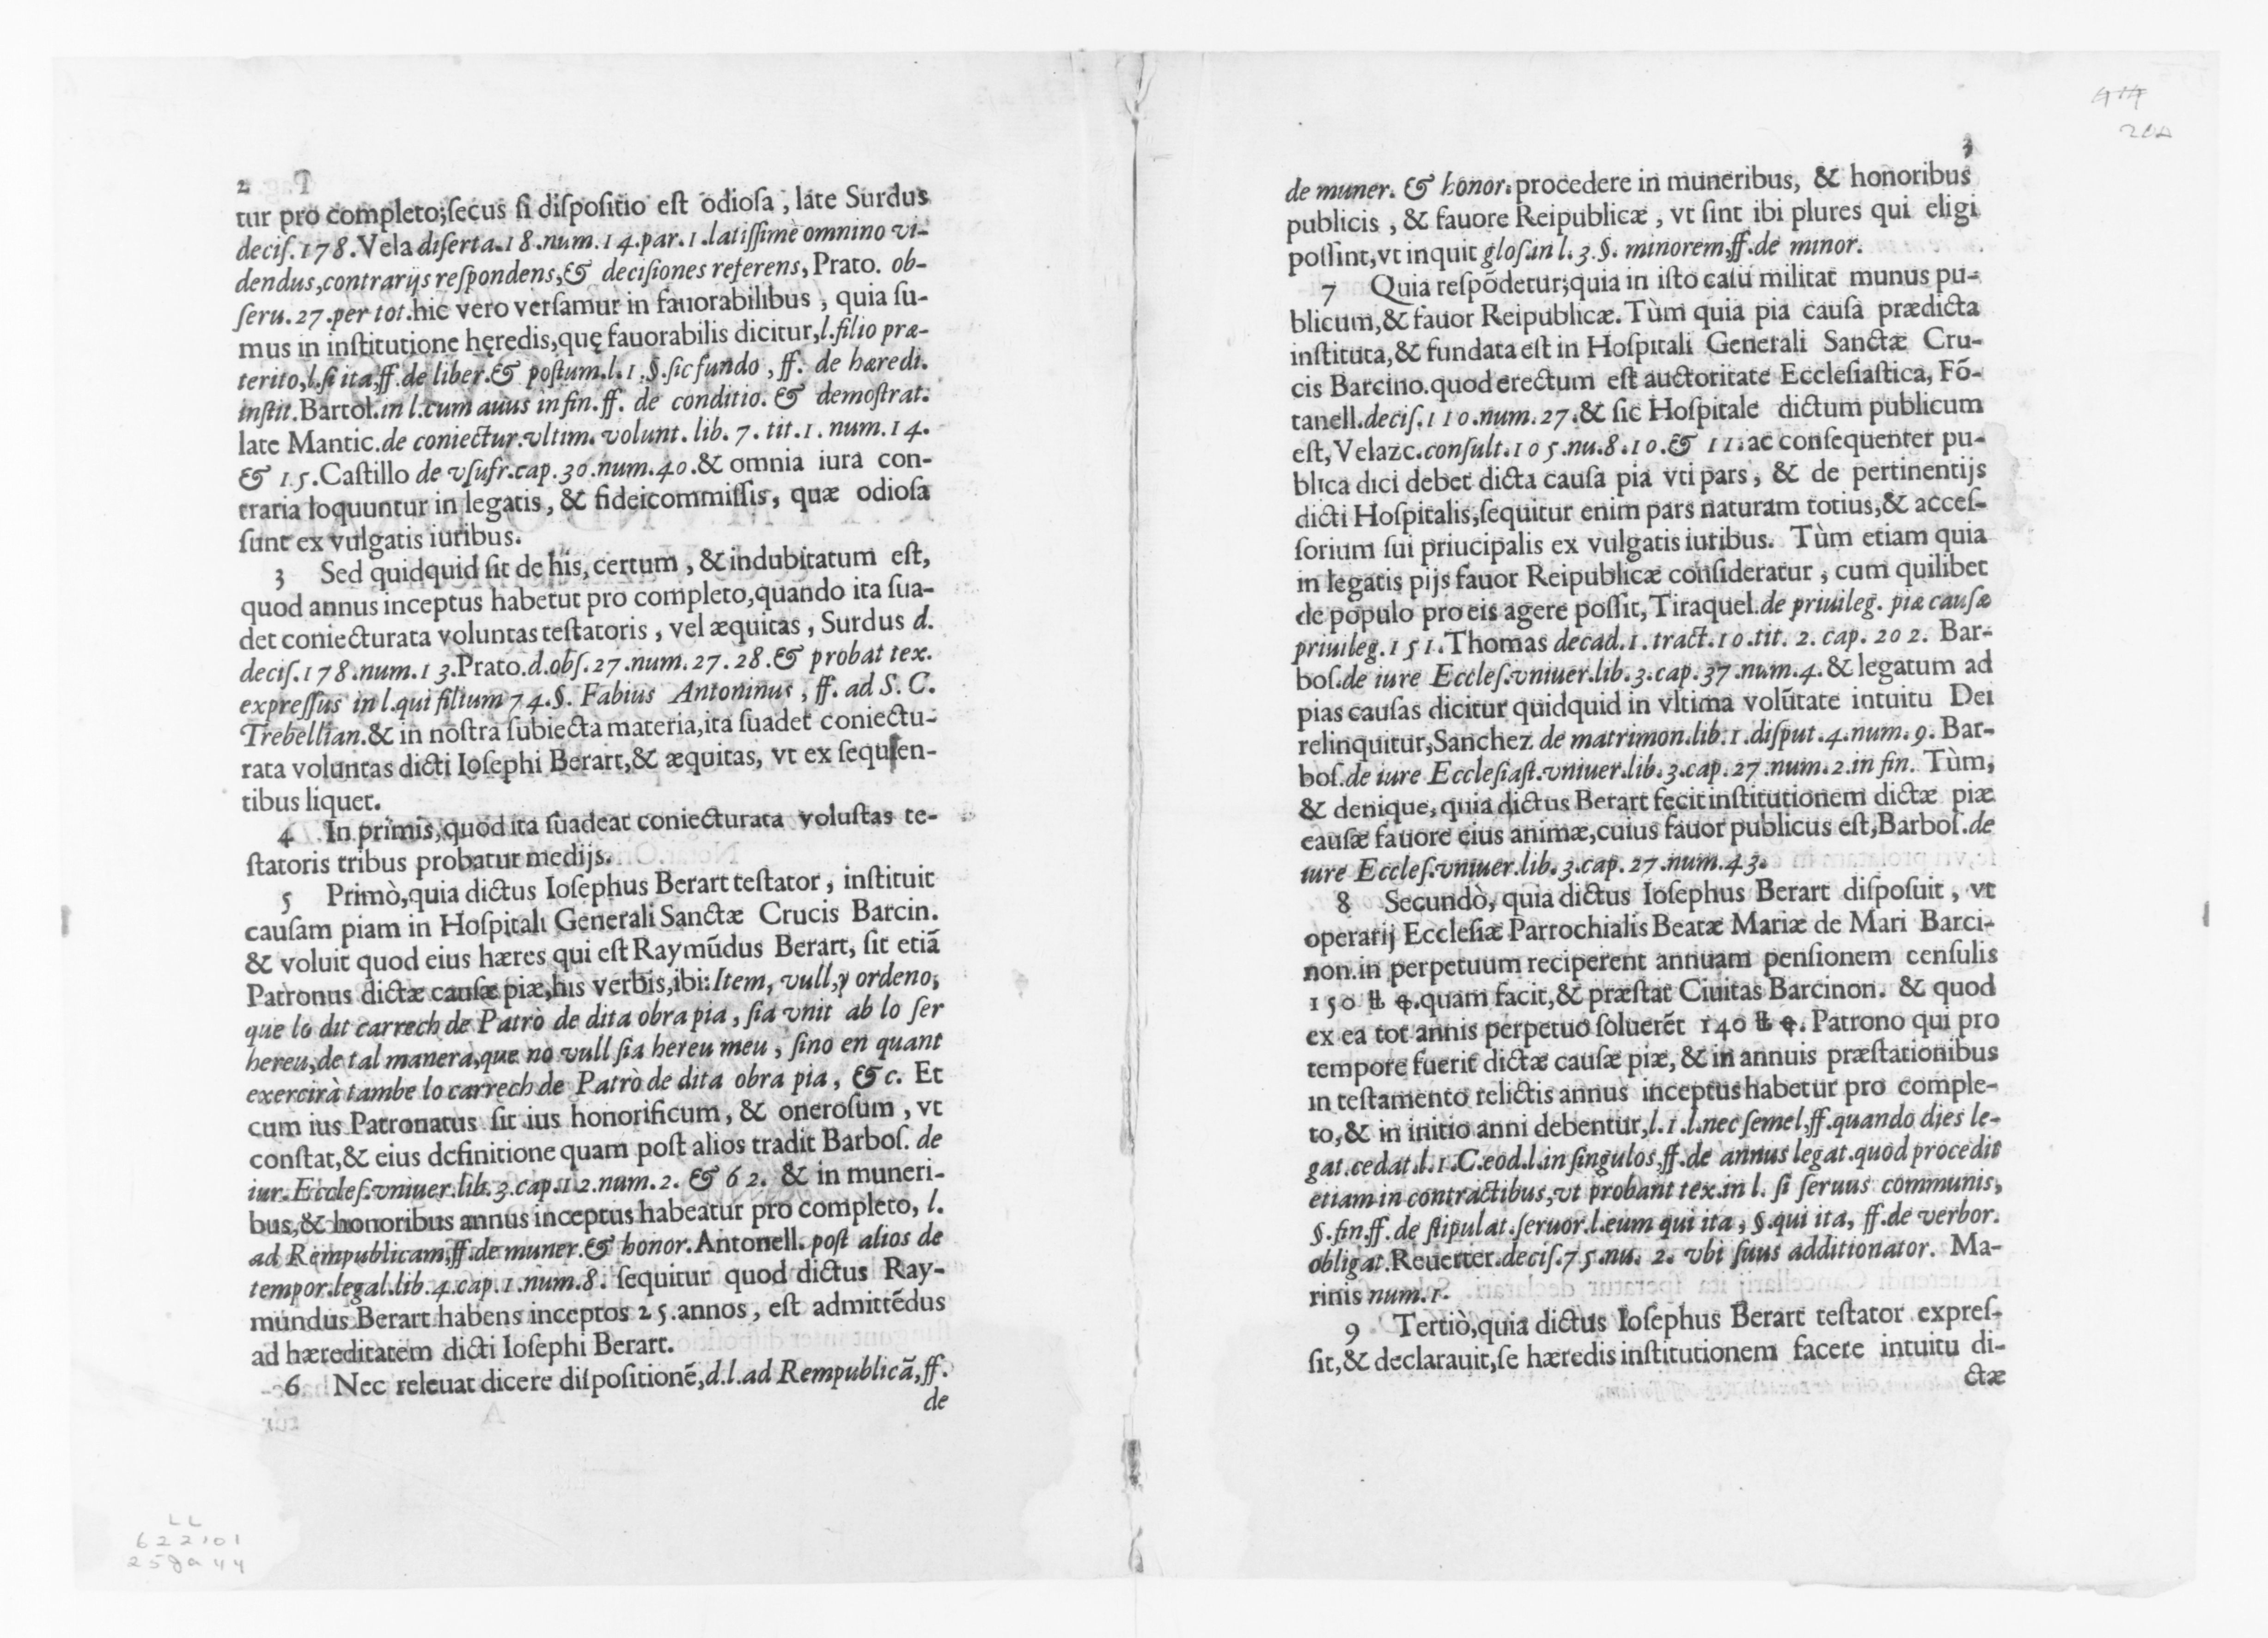 2
tur pro completo;ſecus ſi diſpoſitio eſt odioſa, late Surdus
deciſ.178.Vela diſerta.18.num.14.par.1.latiſſimè omnino vi-
dendus,contrarijs reſpondens,& deciſiones referens, Prato. ob-
ſeru.27.per tot.hic vero verſamur in fauorabilibus, quia ſu-
mus in inſtitutione hęredis,quę fauorabilis dicitur,l.filio præ-
terito,l.ſi ita,ff.de liber.& poſtum.l.1.§.ſic fundo, ff. de hæredi.
inſtit.Bartol.in l.cum auus in fin.ff. de conditio. & demoſtrat.
late Mantic.de coniectur.vltim.volunt.lib. 7. tit.1. num.14.
& 15.Caſtillo de vſufr.cap.30.num.40.& omnia iura con-
traria loquuntur in legatis, & fideicommiſſis, quæ odioſa
ſunt ex vulgatis iuribus.
3 Sed quidquid ſit de his, certum, & indubitatum eſt,
quod annus inceptus habetur pro completo,quando ita ſua-
det coniecturata voluntas teſtatoris, vel æquitas, Surdus d.
deciſ.178.num.13.Prato.d.obſ.27.num.27.28.& probat tex.
expreſſus in l.qui filium 74.§. Fabius Antoninus, ff. ad S. C.
Trebellian.& in noſtra ſubiecta materia,ita ſuadet coniectu-
rata voluntas dicti Ioſephi Berart,& æquitas, vt ex ſequſen-
tibus liquet.
4 In primis,quòd ita ſuadeat coniecturata voluſtas te-
ſtatoris tribus probatur medijs.
5 Primò,quia dictus Ioſephus Berart teſtator, inſtituit
cauſam piam in Hoſpitali Generali Sanctæ Crucis Barcin.
& voluit quod eius hæres qui eſt Raymũdus Berart, ſit etiã
Patronus dictæ cauſæ piæ,his verbis,ibi:Item, vull,y ordeno,
que lo dit carrech de Patrò de dita obra pia, ſia vnit ab lo ſer
hereu,de tal manera,que no vull ſia hereu meu, ſino en quant
exercirà tambe lo carrech de Patrò de dita obra pia, &c. Et
cum ius Patronatus ſit ius honorificum, & oneroſum, vt
conſtat,& eius definitione quam poſt alios tradit Barboſ. de
iur.Eccleſ.vniuer.lib.3.cap.12.num.2. & 62. & in muneri-
bus,& honoribus annus inceptus habeatur pro completo, l.
ad Rempublicam,ff.de muner.& honor.Antonell. poſt alios de
tempor.legal.lib.4.cap.1.num.8. ſequitur quod dictus Ray-
mundus Berart habens inceptos 25.annos, eſt admittẽdus
ad hæreditatem dicti Ioſephi Berart.
6 Nec releuat dicere diſpoſitionẽ,d.l.ad Rempublicã,ff.
de
LL
622101
3
de muner. & honor.procedere in muneribus, & honoribus
publicis, & fauore Reipublicæ, vt ſint ibi plures qui eligi
poſſint,vt inquit gloſ.in l.3.§. minorem,ff.de minor.
7 Quia reſpõdetur;quia in iſto caſu militat munus pu-
blicum,& fauor Reipublicæ.Tùm quia pia cauſa prædicta
inſtituta,& fundata eſt in Hoſpitali Generali Sanctæ Cru-
cis Barcino.quod erectum eſt auctoritate Eccleſiaſtica, Fõ-
tanell.deciſ.110.num.27.& ſic Hoſpitale dictum publicum
eſt, Velazc.conſult.105.nu.8.10.& 11.ac conſequenter pu-
blica dici debet dicta cauſa pia vti pars, & de pertinentijs
dicti Hoſpitalis,ſequitur enim pars naturam totius,& acceſ-
ſorium ſui priucipalis ex vulgatis iuribus. Tùm etiam quia
in legatis pijs fauor Reipublicæ conſideratur, cum quilibet
de populo pro eis agere poſſit, Tiraquel.de priuileg. piæ cauſæ
priuileg.151.Thomas decad.1.tract.10.tit. 2. cap. 202. Bar-
boſ.de iure Eccleſ.vniuer.lib.3.cap.37.num.4.& legatum ad
pias cauſas dicitur quidquid in vltima volũtate intuitu Dei
relinquitur,Sanchez de matrimon.lib.1.diſput.4.num.9. Bar-
boſ.de iure Eccleſiaſt.vniuer.lib.3.cap.27.num.2.in fin. Tùm,
& denique,quia dictus Berart fecit inſtitutionem dictæ piæ
cauſæ fauore eius animæ,cuius fauor publicus eſt,Barboſ.de
iure Eccleſ.vniuer.lib.3.cap.27.num.43.
8 Secundò, quia dictus Ioſephus Berart diſpoſuit, vt
operarij Eccleſiæ Parrochialis Beatæ Mariæ de Mari Barci-
non.in perpetuum reciperent annuam penſionem cenſulis
150 ℔ .quam facit,& præſtat Ciuitas Barcinon. & quod
ex ea tot annis perpetuo ſoluerẽt 140 ℔ . Patrono qui pro
tempore fuerit dictæ cauſæ piæ, & in annuis præſtationibus
in teſtamento relictis annus inceptus habetur pro comple-
to,& in initio anni debentur,l.1.l.nec ſemel,ff.quando dies le-
gat.cedat.l.1.C.eod.l.in ſingulos,ff.de annus legat.quod procedit
etiam in contractibus,vt probant tex.in l. ſi ſeruus communis,
§.fin.ff. de ſtipulat.ſeruor.l.eum qui ita, §.qui ita, ff.de verbor.
obligat.Reuerter.deciſ.75.nu. 2. vbi ſuus additionator. Ma-
rinis num.1.
9 Tertiò,quia dictus Ioſephus Berart teſtator expreſ-
ſit,& declarauit,ſe hæredis inſtitutionem facere intuitu di-
ctæ